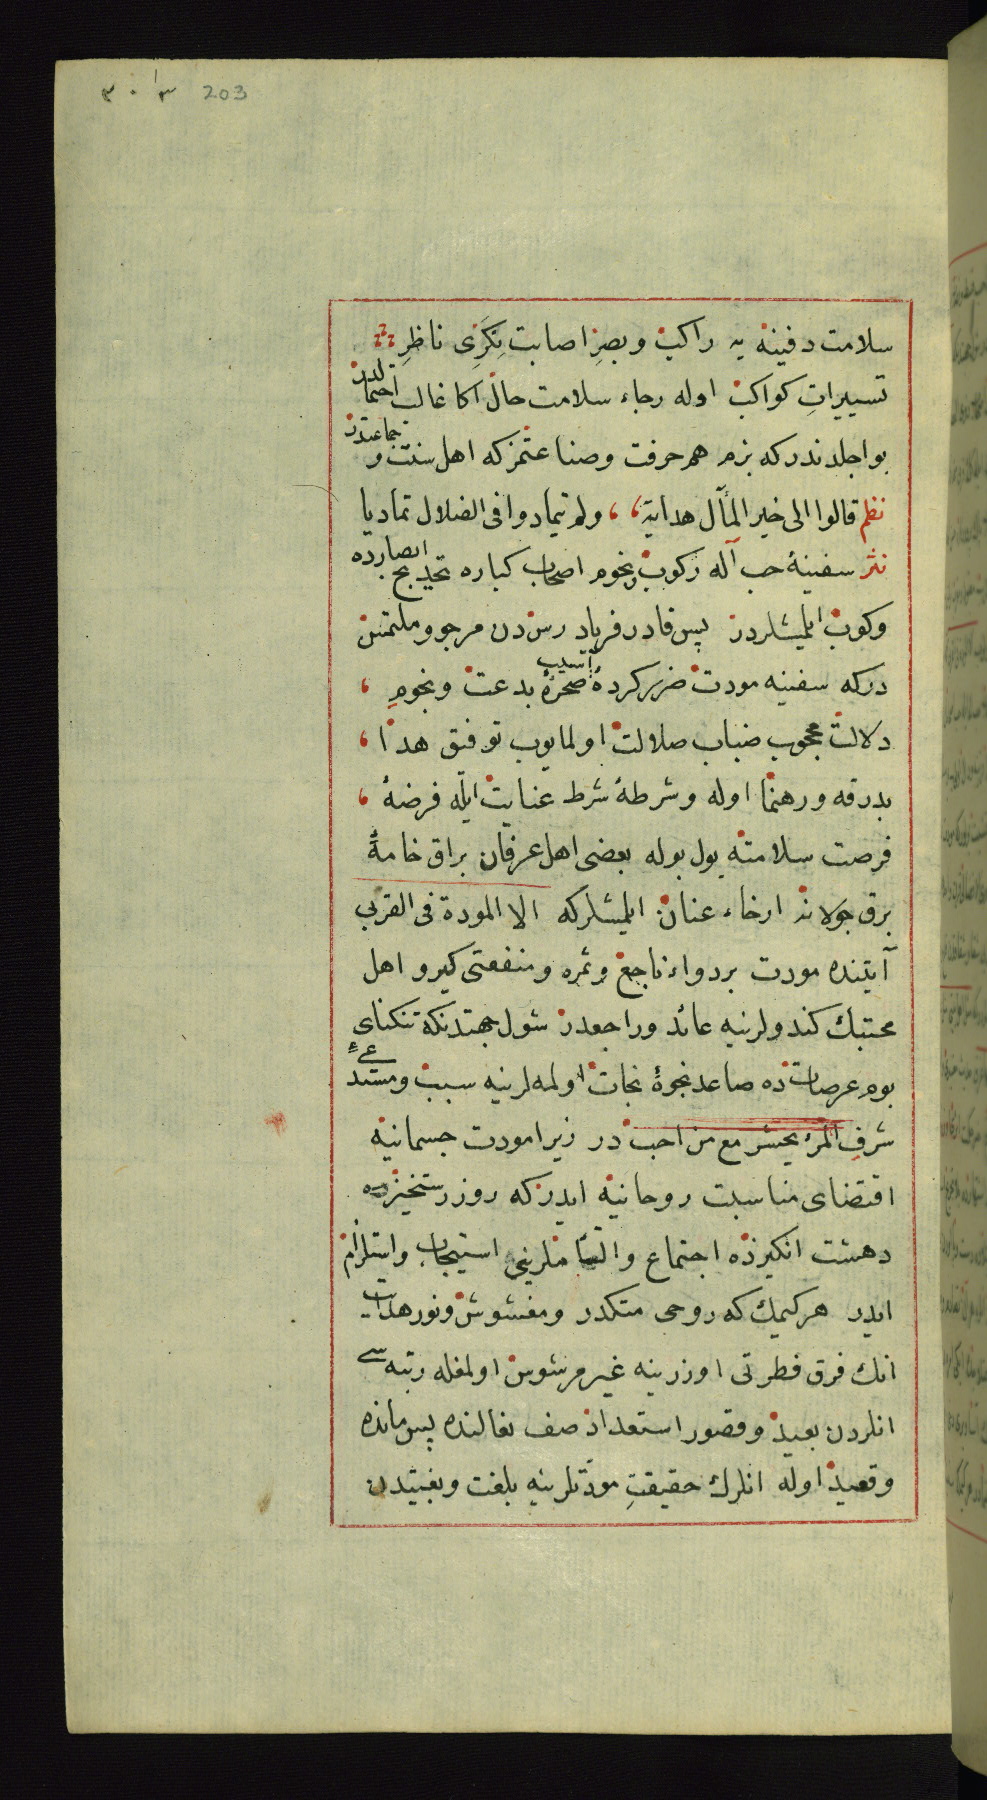 ٢٠٣ 203
سلامت دفینه یه راکب و بصر اصابت نکری ناظر
تسییرات کواکب اوله رجاء سلامت حال اکا غالب احتمالدر
بو اجلدندر که بزم هم حرفت و صناعتمز که اهل سنت و جماعتدر
نظم قالوا الی خیر المآل هدایة ، ولم تیمادوا فی الضلال تمادیا
نثر سفینهٔ حب آله رکوب و نجوم اصحاب کباره تحدیج ابصارده
وکوب ایلیشلردر پس قادر فریاد رس دن مرجو و ملتمس
درکه سفینه مودت ضربر کردهٔ آسیب صخرهٔ بدعت و نجوم ،
دلالت محجوب ضباب ضلالت اولمایوب توفیق هدا ،
بدرقه و رهنما اوله و شرطهٔ شرط عنایت ایله فرضهٔ ،
فرصت سلامته یول بوله بعضی اهل عرفان براق خامهٔ
برق جولانه ارخاء عنان ایلیشلرکه الا المودة فی القربی
آیتنده مودت بر دواء ناجع و ثمره و منفعتی کیرو اهل
محبتک کندولرینه عائد و راجعدر شول جهتدنکه تنکنای
یوم عرصات ده صاعد نجوهٔ نجات اولمه لرینه سبب و مستدعئ
شرف المرء یحشر مع من احب در زیرا مودت جسمانیه
اقتضای مناسبت روحانیه ایدر که روز رستخیزده
دهشت انکیزده اجتماع و التیاملرینی استیجاب و استلزام
ایدر هر کیمک که روحی متکدر و مغشوش و نور هدایت
انک فرق فطرتی اوزرینه غیر مرشوش اولمغله رتبه سی
انلردن بعید و قصور استعداد صف نعالنده پس مانده
و قعید اوله انلرک حقیقت مودتلرینه بلغت و بغیتدن